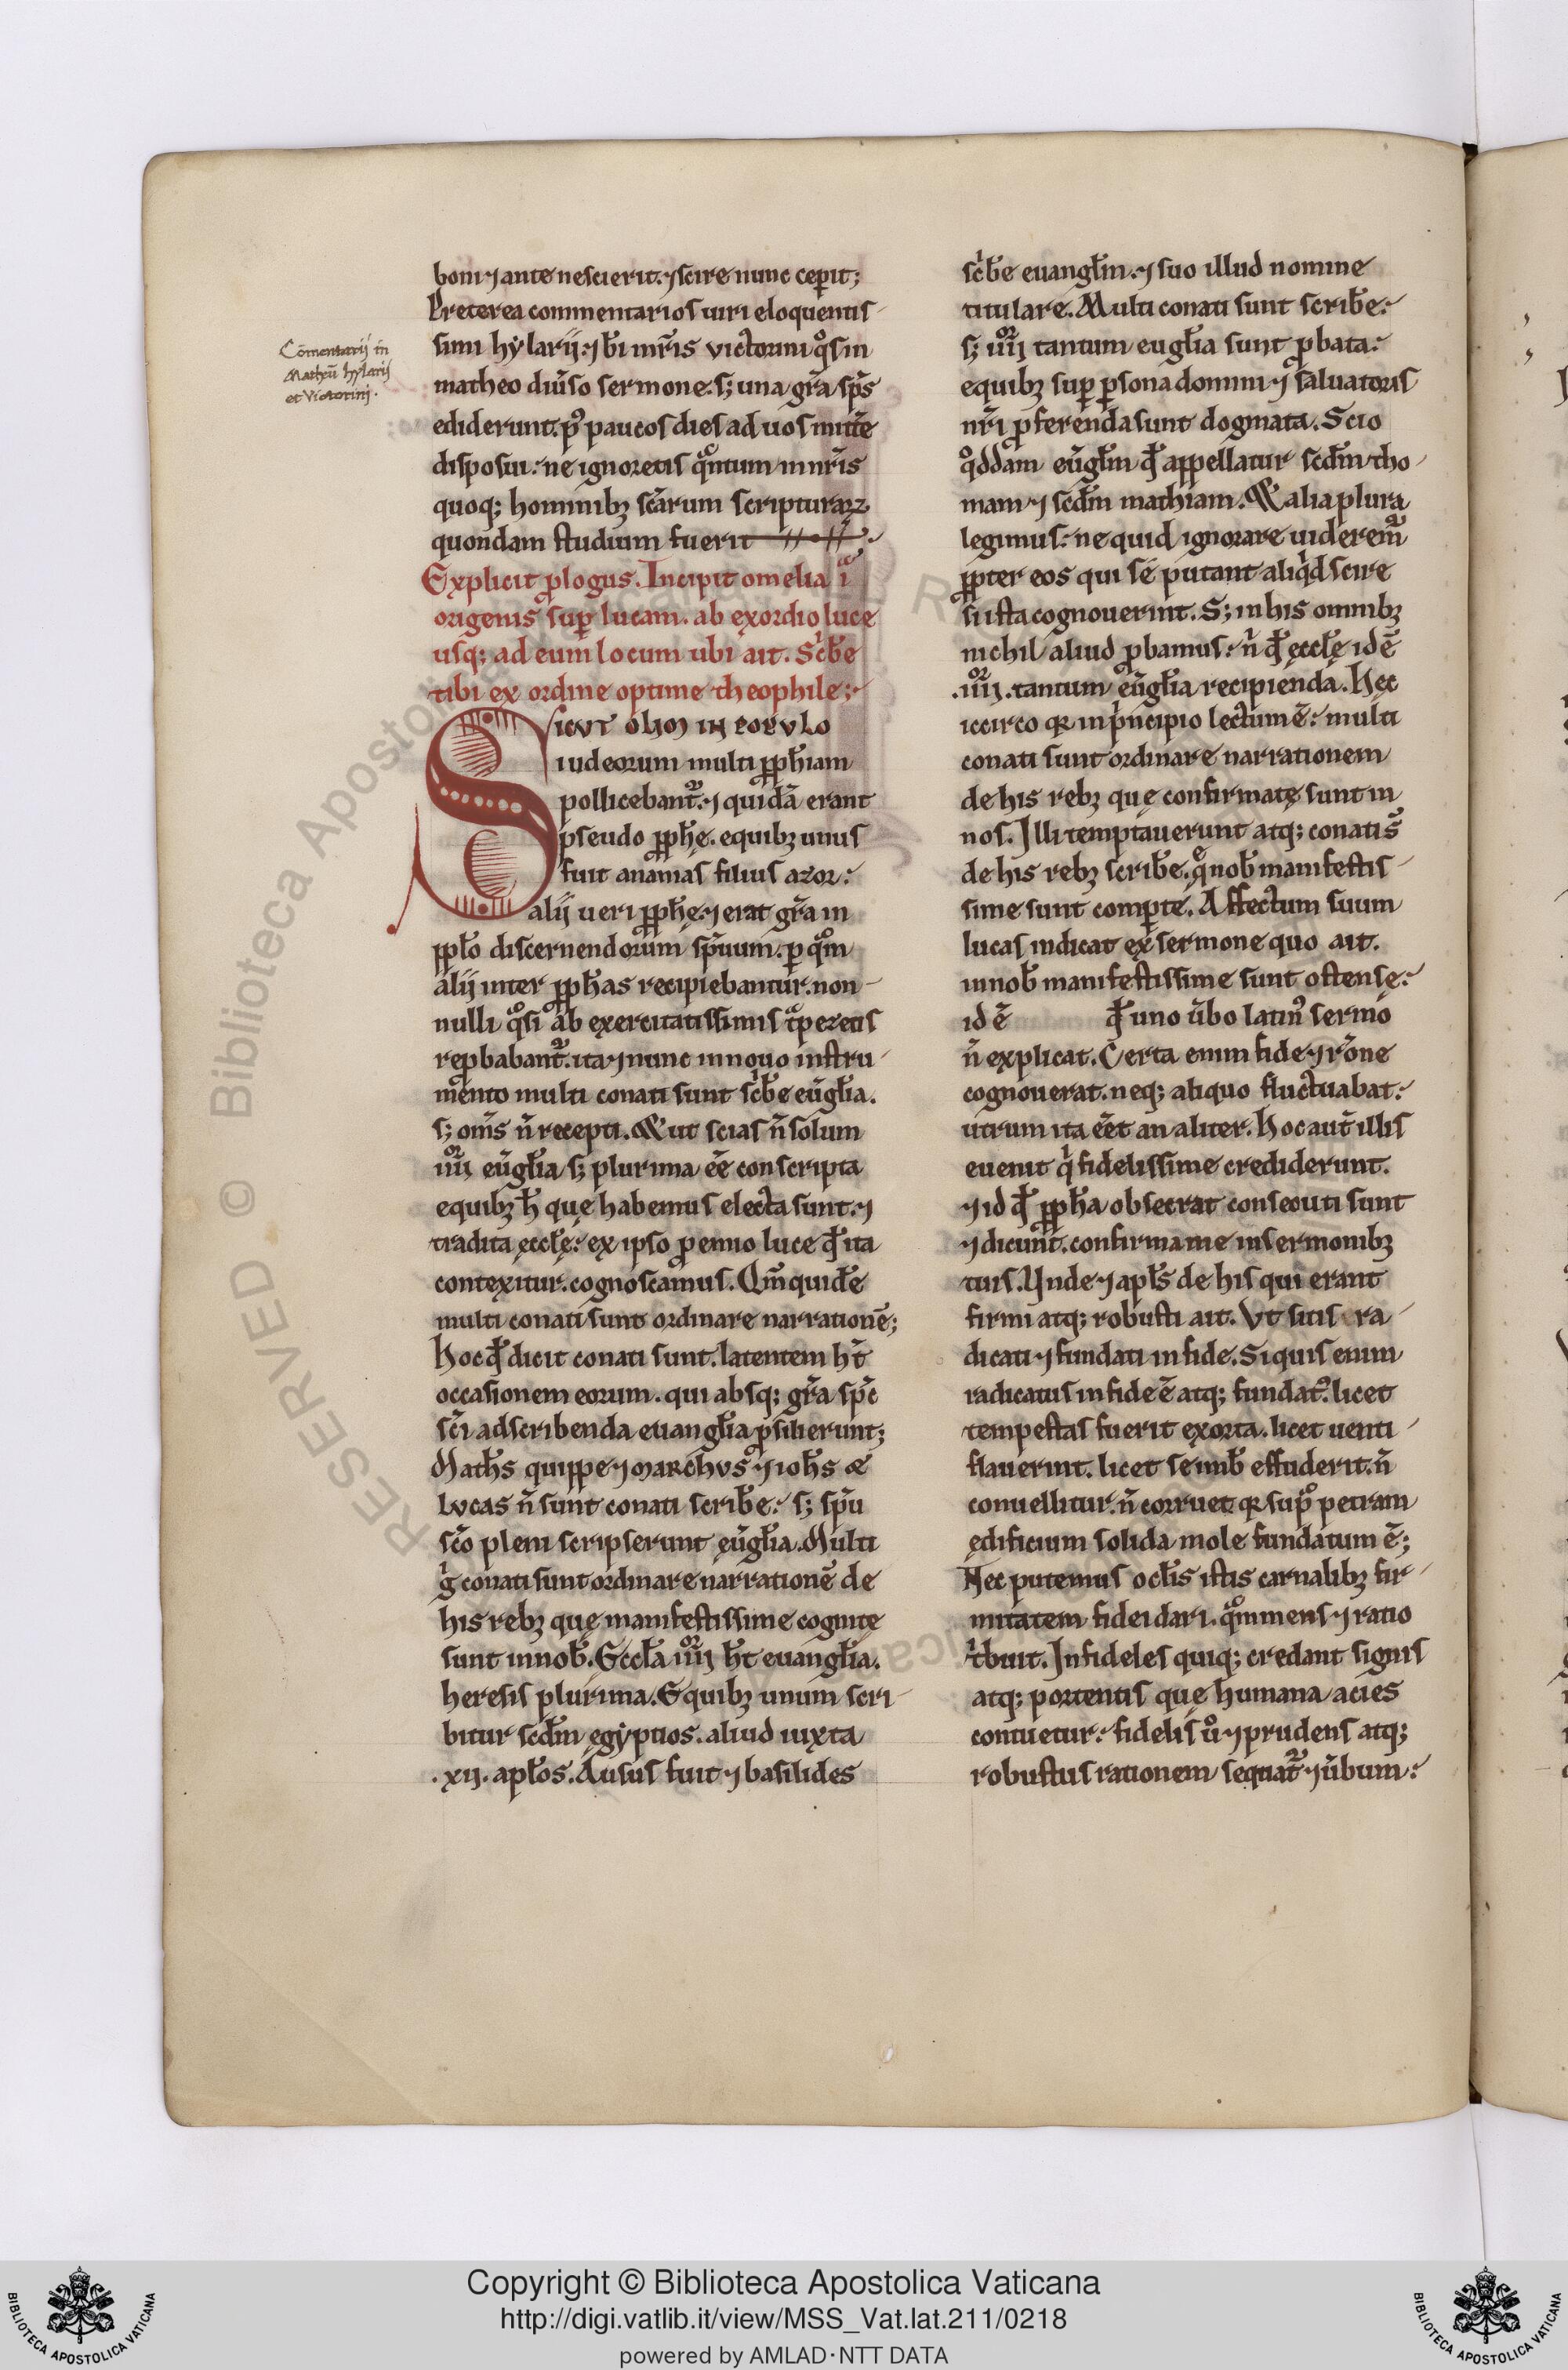 boni ⁊ ante nescierit. ⁊ scire nunc cep̄it;
Preterea commentarios uiri eloquentis-
simi hẏlarij: ⁊ b̄i mr̄is victorini qͦs in
matheo diũso sermone. s; una gr̄a sp̄s
ediderunt. p᷒ paucos dies ad uos mitt̄e
disposui: ne ignoretis qͣntum in nr̄is
quoq; hominibꝫ sc̄arum scripturaꝝ
quondam studium fuerit
Cōmentarij in
Matheū hylarij
et Victorini.
Explicit ꝓlogus. Incipit omelia .i.ᵃ
origenis sup̄ lucam. ab exordio luce
usq; ad eum locum ubi ait. Scͥb̄e
tibi ex ordine optime theophile;
SICVT OLIM IN POPVLO
iudeorum multi ꝓph̄iam
pollicebant᷑. ⁊ quidā erant
pseudo ꝓph̄ę. equibꝫ unus
fuit ananias filius azor:
alij ueri ꝓph̄ę. ⁊ erat gr̄a in
pp̄lo discernendorum sp̄uum. ꝑ qͣm
alij inter ꝓph̄as recipiebantur. non-
nulli qͣsi ab exercitatissimis tͣpezetis
reꝓbabant᷑. ita ⁊ nunc in nouo instru-
mento multi conati sunt scͥb̄e eũgl̄ia.
s; om̄s n̄ recepti. Et ut scias n̄ solum
iiiiᵒʳ eũgl̄ia s; plurima eē conscripta
equibꝫ h̄ que habemus electa sunt. ⁊
tradita ęccl̄ę: ex ipso ꝓemio luce qđ ita
contexitur. cognoscamus. Qm̄ quidē
multi conati sunt ordinare narrationē;
Hoc qđ dicit conati sunt. latentem h̄t
occasionem eorum. qui absq; gr̄a sp̄c
sc̄i ad scribenda euangl̄ia ꝓsilierunt;
Math̄s quippe ⁊ marchvs ⁊ ioh̄s æ
Lvcas n̄ sunt conati scrib̄e: s; sp̄u
sc̄o pleni scripserunt eũgl̄ia. Multi
gͥ conati sunt ordinare narrationē de
his rebꝫ quę manifestissime cognite
sunt in nob̄. Eccl̄a iiiiᵒʳ h̄t euangl̄ia.
heresis plurima. Equibꝫ unum scri-
bitur scd̄m ęgẏptios. aliud iuxta
.xij. apl̄os. Ausus fuit ⁊ basilides
scͥb̄e euangl̄m. ⁊ suo illud nomine
titulare. Multi conati sunt scrib̄e:
s; iiiiᵒʳ tantum eugl̄ia sunt ꝓbata:
equibꝫ sup̄ ꝑsona domini ⁊ saluatoris
nr̄i ꝓferenda sunt dogmata. Scio
qͦddam eũgl̄m qđ appellatur scd̄m tho-
mam ⁊ scd̄m mathiam. Et alia plura
legimus: ne quid ignorare uiderem᷑
ꝓpter eos qui se putant aliqͥd scire
si ista cognouerint. S; in his omnibꝫ
nichil aliud ꝓbamus: nͥ qđ ęccl̄ę id ē
.iiiiᵒʳ. tantum eũgl̄ia recipienda. Hec
iccirco qꝛ in pͥncipio lectum ē: multi
conati sunt ordinare narrationem
de his rebꝫ quę confirmatę sunt in
nos. Illi temptauerunt atq; conati s̄
de his rebꝫ scrib̄e. qͤ nob̄ manifestis-
sime sunt comp̄te. Affectum suum
lucas indicat ex sermone quo ait.
in nob̄ manifestissime sunt ostensę:
id ē qđ uno ũbo latin᷒ sermo
n̄ explicat. Certa enim fide ⁊ r̄one
cognouerat. neq; aliquo fluctuabat:
utrum ita eēt an aliter. Hoc aut̄ illis
euenit qͥ fidelissime crediderunt.
⁊ id qđ ꝓph̄a obsecrat consecuti sunt
⁊ dicunt. confirma me in sermonibꝫ
tuis. Vnde ⁊ apl̄s de his qui erant
firmi atq; robusti ait. Vt sitis ra-
dicati ⁊ fundati in fide. Si quis enim
radicatus in fide ē atq; fundat᷒. licet
tempestas fuerit exorta. licet uenti
flauerint. licet se imb̄ effuderit. n̄
conuellitur. n̄ corruet qꝛ supͣ petram
ędificium solida mole fundatum ē;
Nec putemus ocl̄is istis carnalibꝫ fir-
mitatem fidei dari. qͣm mens ⁊ ratio
tͥbuit. Infideles quiq; credant signis
atq; portentis quę humana acies
contuetur: fidelis uͦ ⁊ prudens atq;
robustus rationem sequat᷑ ⁊ ũbum:
RESERVED · © Biblioteca Apostolica Vaticana
Copyright © Biblioteca Apostolica Vaticana
http://digi.vatlib.it/view/MSS_Vat.lat.211/0218
powered by AMLAD·NTT DATA
BIBLIOTECA APOSTOLICA VATICANA
BIBLIOTECA APOSTOLICA VATICANA